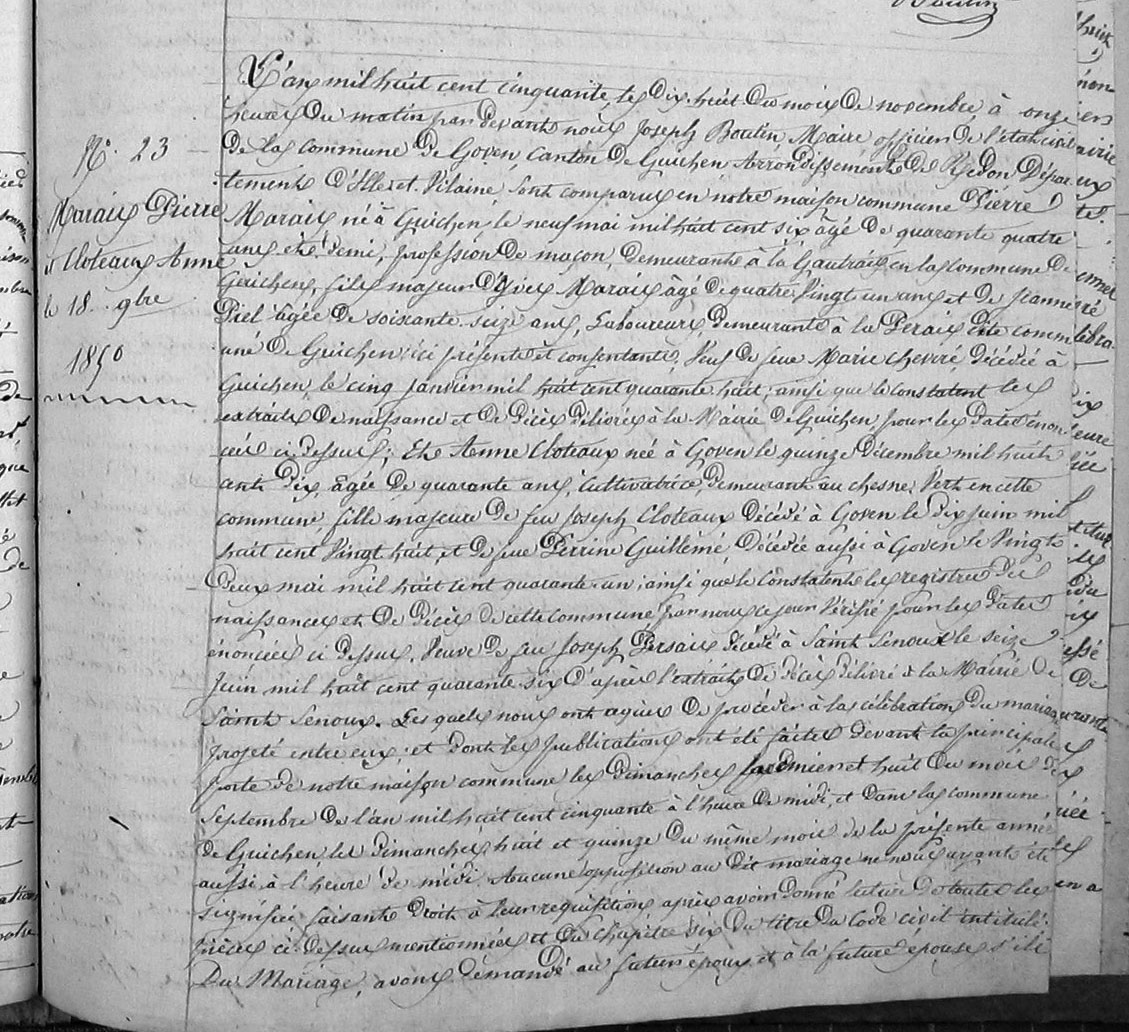 Boutin
N°. 23
Marais Pierre
et Cloteaux Anne
le 18. 9bre
1850
L'an mil huit cent cinquante, le dix huit du mois de novembre, à onze
heures du matin, par devant nous Joseph Boutin, Maire officier de l'état civil
de la commune de Goven, Canton de Guichen Arrondissement de Redon Dépar
tement d'Ille et Vilaine, sont comparus en notre maison commune Pierre
Marais né à Guichen le neuf mai mil huit cent six âgé de quarante quatre
ans et demi, profession de maçon, demeurant à la Gautrais en la commune de
Guichen, fils majeur d'Yves Marais âgé de quatre vingt un ans et de Jeanne
Piel âgée de soixante seize ans, Laboureurs demeurant à la Perais dite comm
une de Guichen; ici présents et consentants, Veuf de feue Marie chevré, décédée à
Guichen le cinq janvier mil huit cent quarante huit, ainsi que le constatent les
extraits de naissance et de Décès délivrés à la Mairie de Guichen, pour les dates énon
cées ci dessus; Et Anne Cloteaux née à Goven le quinze Décembre mil huit
cent dix, âgée de quarante ans, Cultivatrice, demeurant au chesne Vert en cette
commune, fille majeure de feu Joseph Cloteaux décédé à Goven le dix juin mil
huit cent vingt huit, et de feue Perrine Guillemé, décédée aussi à Goven le Vingt
deux mai mil huit cent quarante un; ainsi que le constatent les registres des
naissances et de décès de cette commune par nous ce jour Vérifié pour les dates
énoncées ci dessus. Veuve de feu Joseph Persais décédé à Saint Senoux le seize
Juin mil huit cent quarante six d'après l'extrait de décès délivré à la Mairie de
Saint Senoux. Lesquels nous ont requis de procéder à la célébration du mariage
projeté entre eux, et dont les publications ont été faites devant la principale
porte de notre maison commune les dimanches premier et huit du mois de
Septembre de l'an mil huit cent cinquante à l'heure de midi, et dans la commune
de Guichen les dimanches huit et quinze du même mois de la présente année
aussi à l'heure de midi. Aucune opposition au dit mariage ne nous ayant été
signifiée, faisant droit à leur requisition, après avoir donné lecture de toutes les
pièces ci-dessus mentionnées et du chapitre six du titre du Code civil intitulé:
Du Mariage, avons demandé au futur époux et à la future épouse s'ils